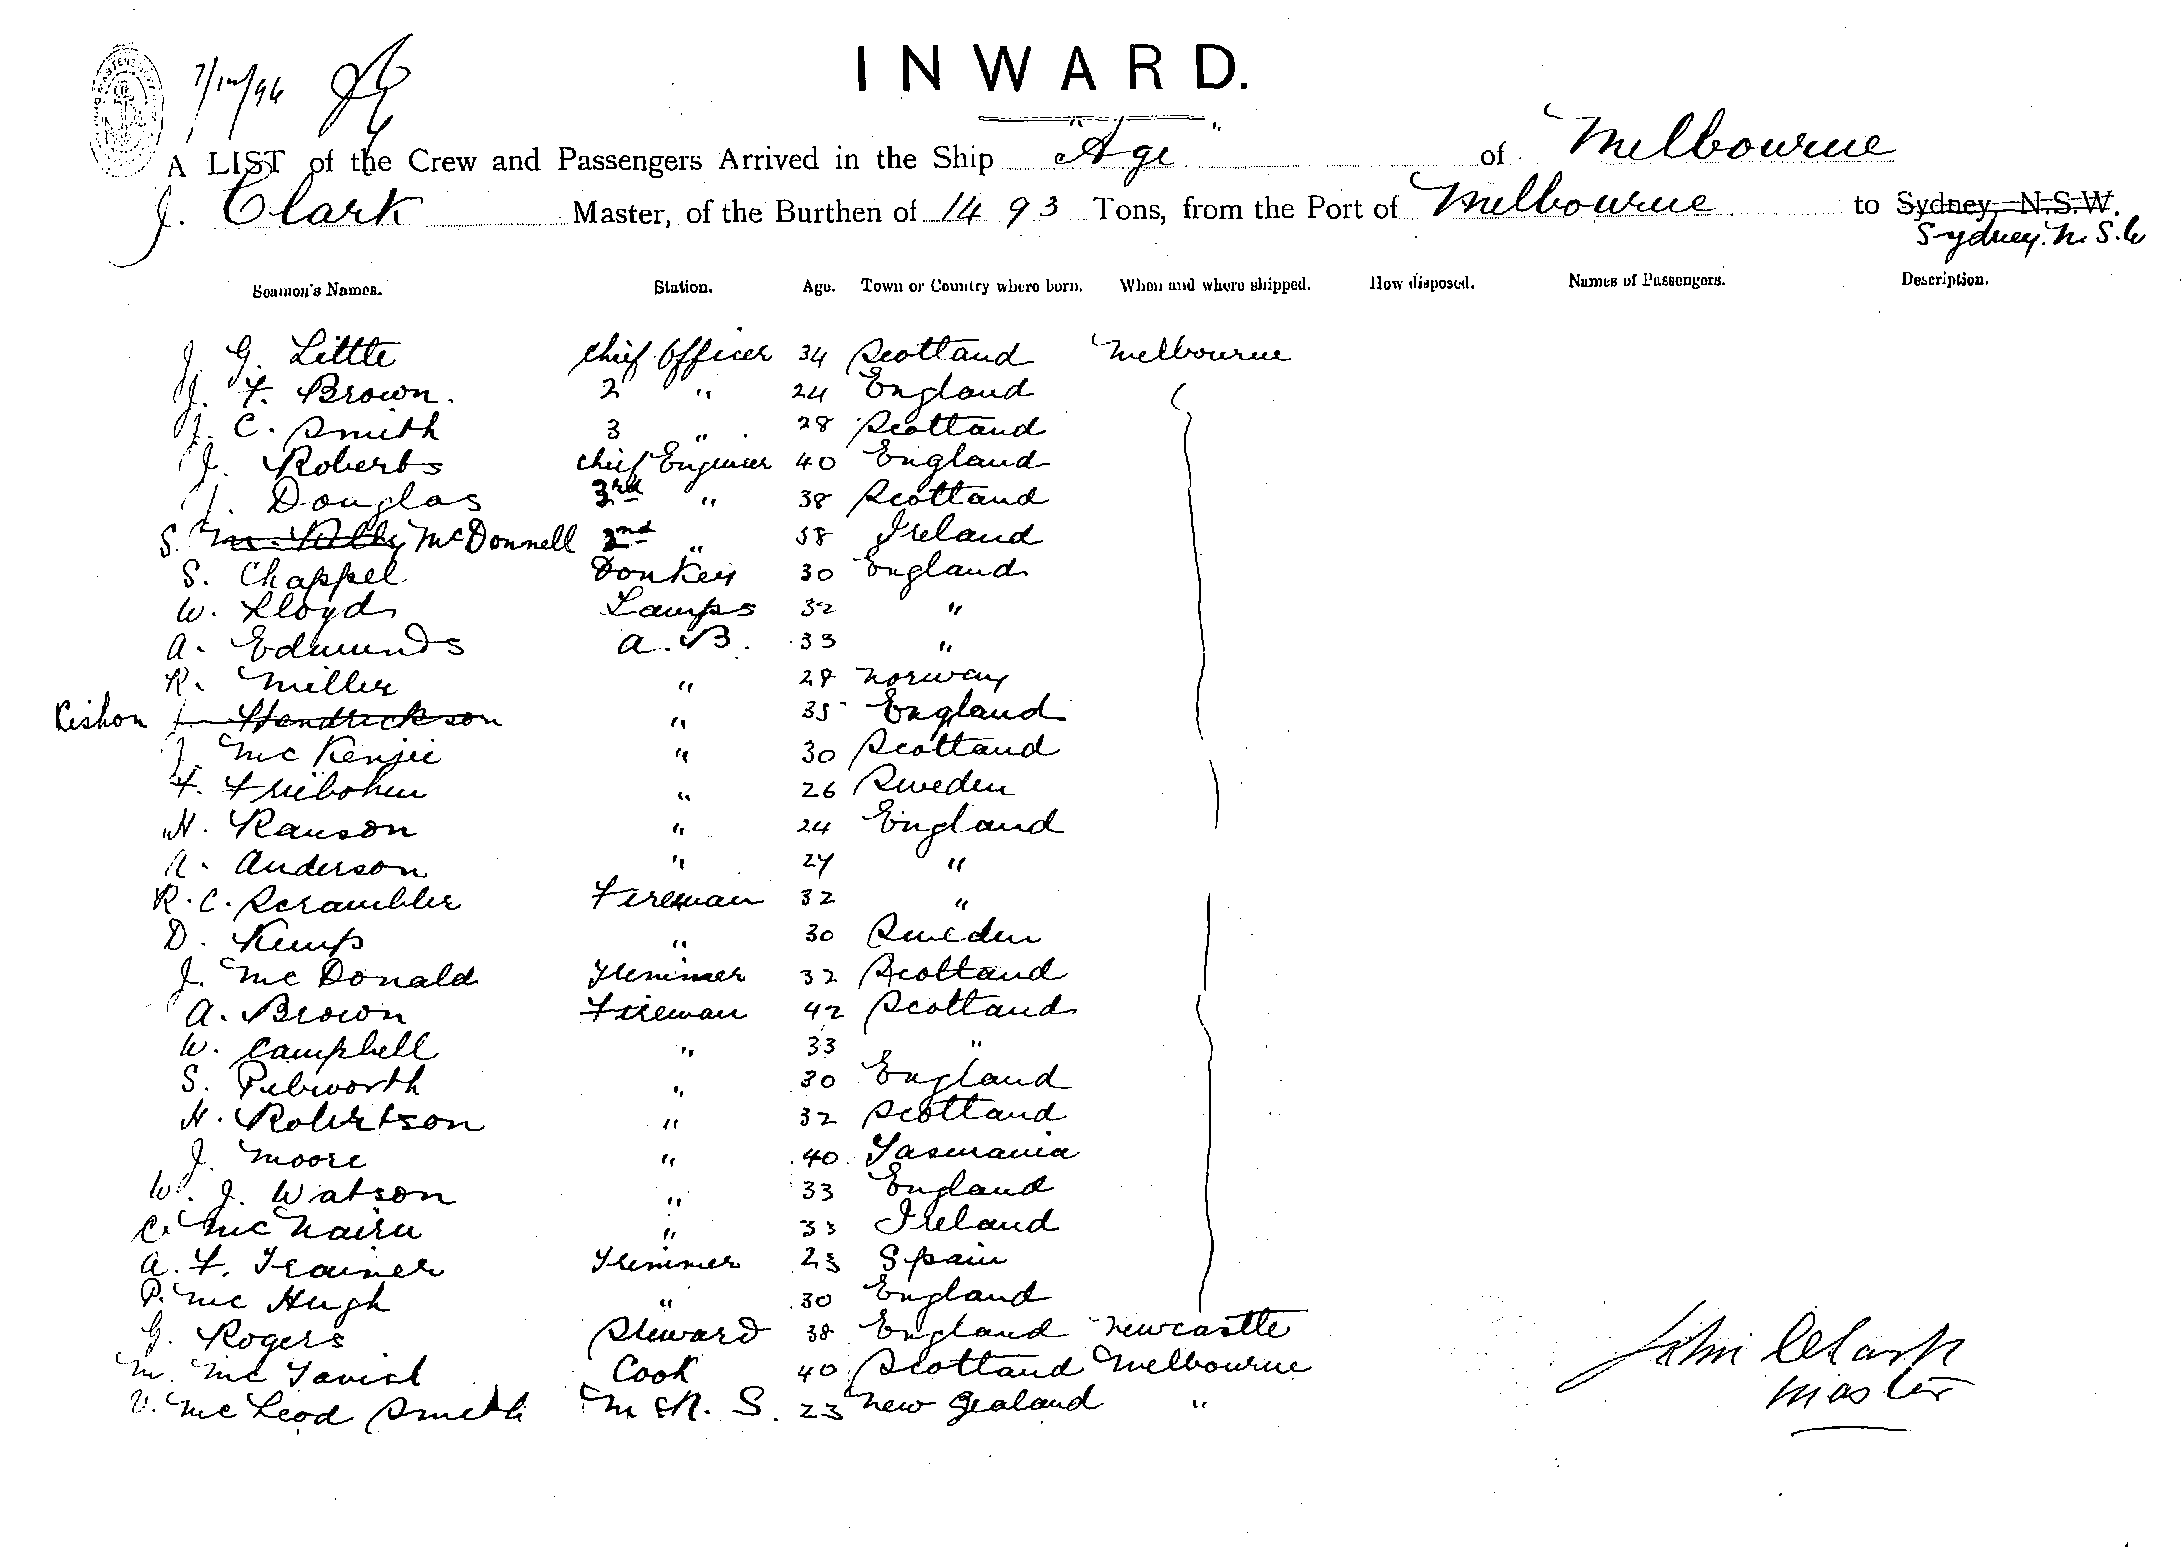 7/12/96
INWARD.
A LIST of the Crew and Passengers Arrived in the Ship "Age" of Melbourne
J. Clark Master, of the Burthen of 1493 Tons, from the Port of Melbourne to Sydney, N.S.W.
Sydney. N. S. W
Seamen's Names. Station. Age. Town or Country where born. When and where shipped. How disposed. Names of Passengers. Description.
J. G. Little Chief Officer 34 Scotland Melbourne
J. F. Brown. 2 " 24 England
J. C. Smith 3 " 28 Scotland
J. Roberts Chief Engineer 40 England
J. Douglas 3rd " 38 Scotland
S. McDonnell 2nd " 38 Ireland
S. Chappel Donkey 30 England
W. Lloyd Lamps 32 "
A. Edmunds A.B. 33 "
R. Miller " 28 Norway
Rishon J. Hendrickson " 35 England
J. McKenzie " 30 Scotland
F. Friebohm " 26 Sweden
H. Ranson " 24 England
A. Anderson " 24 "
R. C. Scrambler Fireman 32 "
D. Kemp " 30 Sweden
J. McDonald Trimmer 32 Scotland
A. Brown Fireman 42 Scotland
W. Campbell " 33 "
S. Pebworth " 30 England
H. Robertson " 32 Scotland
J. Moore " 40 Tasmania
W. J. Watson " 33 England
C. McNairn " 33 Ireland
A. F. Trainer Trimmer 23 Spain
P. McHugh " 30 England
G. Rogers Steward 38 England Newcastle
M. McTavish Cook 40 Scotland Melbourne
V. McLeod Smith M.R.S. 23 New Zealand "
John Clark
Master